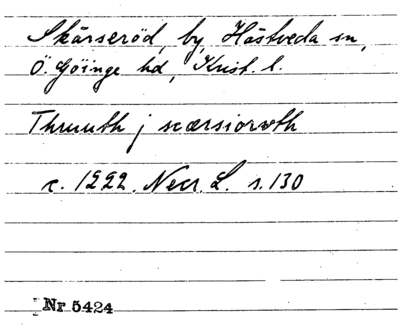 Skärseröd, by, Hästveda sn,
Ö. Göinge hd, Krist. l.
Thruuth j scærsiorøth
c. 1222. Necr. L. s. 130
Nr 5424